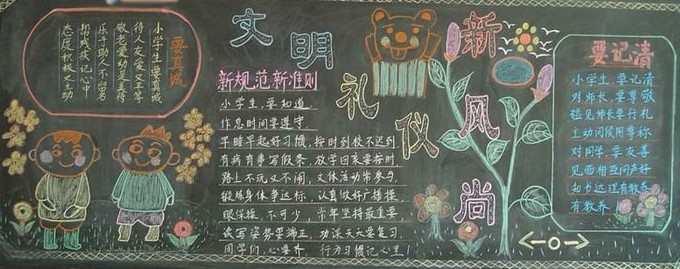 文明礼仪新风尚
要真诚
小学生要真诚
待老友爱又平等
敬老爱幼是美德
乐于助人不留名
帮残疾记心中
态度积极又主动
新规范新准则
小学生,要知道,
作息时间要遵守
早睡早起好习惯,按时到校不迟到
有病有事写假条,放学回家要按时
路上不玩又不闹,文体活动常参与
锻炼身体争达标,认真做好广播操
眼保操,不可少,常年坚持最重要
读写姿势要端正,功课天天要复习
同学们,心要齐,行为习惯记心里!
要记清
小学生,要记清
对师长,要尊敬
碰见师长要行礼
主动问候用尊称
对同学,要友善
见面相互问声好
有教养